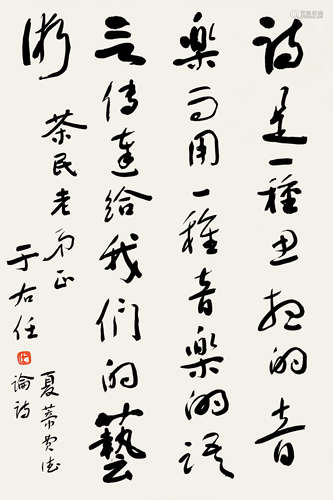 詩是一種思想的音
樂而用一種音樂的語
言傳達給我們的藝
術
茶民老弟正
于右任
夏芾
論詩